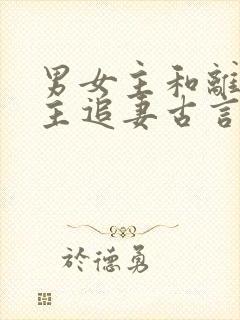 男女主和離
主追妻古言
於德勇